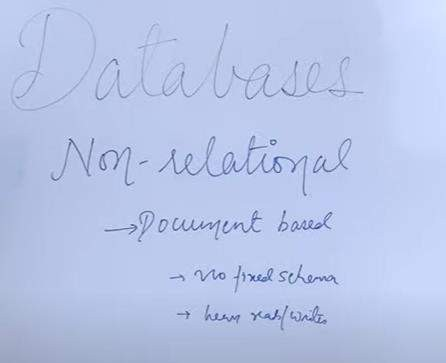 Databases
Non-relational
→ Document based
→ no fixed schema
→ heavy reads/writes